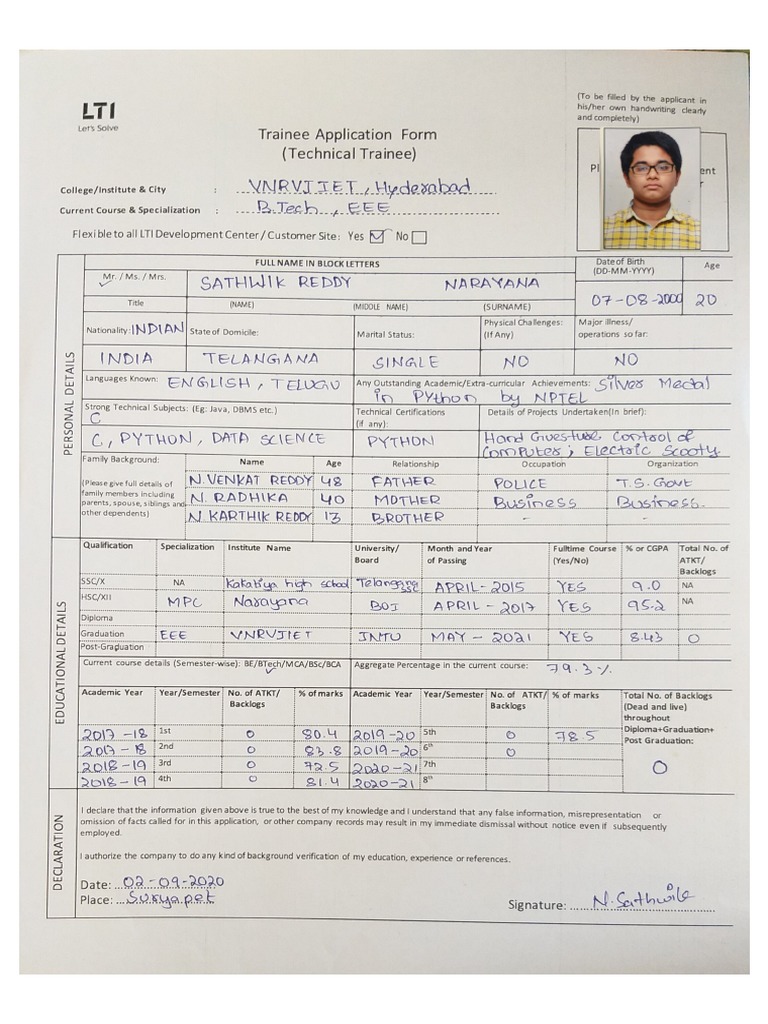 LTI
Let's Solve
(To be filled by the applicant in
his/her own handwriting clearly
and completely)
Trainee Application Form
(Technical Trainee)
Pl
ent
r
College/Institute & City : VNRVJIET, Hyderabad
Current Course & Specialization : B.Tech, EEE
Flexible to all LTI Development Center / Customer Site: Yes ☑ No ☐
PERSONAL DETAILS
FULL NAME IN BLOCK LETTERS Date of Birth Age
(DD-MM-YYYY)
Mr. / Ms. / Mrs. SATHWIK REDDY NARAYANA
✓ 07-08-2000 20
Title (NAME) (MIDDLE NAME) (SURNAME)
Nationality: INDIAN State of Domicile: Marital Status: Physical Challenges: Major illness/
(If Any) operations so far:
INDIA TELANGANA SINGLE NO NO
Languages Known: ENGLISH, TELUGU Any Outstanding Academic/Extra-curricular Achievements: Silver Medal
in Python by NPTEL
Strong Technical Subjects: (Eg: Java, DBMS etc.) Technical Certifications Details of Projects Undertaken(In brief):
C (if any):
C, PYTHON, DATA SCIENCE PYTHON Hand Guesture Control of
Computer; Electric Scooty
Family Background: Name Age Relationship Occupation Organization
(Please give full details of N.VENKAT REDDY 48 FATHER POLICE T.S. Govt
family members including
parents, spouse, siblings and N. RADHIKA 40 MOTHER Business Business.
other dependents) N. KARTHIK REDDY 13 BROTHER - -
EDUCATIONAL DETAILS
Qualification Specialization Institute Name University/ Month and Year Fulltime Course % or CGPA Total No. of
Board of Passing (Yes/No) ATKT/
Backlogs
SSC/X NA Kakatiya high school Telangana SSC APRIL - 2015 YES 9.0 NA
HSC/XII MPC Narayana BOI APRIL - 2017 YES 95.2 NA
Diploma
Graduation EEE VNRVJIET JNTU MAY - 2021 YES 8.43 0
Post-Graduation
Current course details (Semester-wise): BE/BTech/MCA/BSc/BCA Aggregate Percentage in the current course: 79.3%
✓
Academic Year Year/Semester No. of ATKT/ % of marks Academic Year Year/Semester No. of ATKT/ % of marks Total No. of Backlogs
Backlogs Backlogs (Dead and live)
throughout
Diploma+Graduation+
Post Graduation:
2017-18 1st 0 80.4 2019-20 5th 0 78.5
2017-18 2nd 0 83.8 2019-20 6th 0
2018-19 3rd 0 72.5 2020-21 7th 0
2018-19 4th 0 81.4 2020-21 8th
DECLARATION
I declare that the information given above is true to the best of my knowledge and I understand that any false information, misrepresentation or
omission of facts called for in this application, or other company records may result in my immediate dismissal without notice even if subsequently
employed.
I authorize the company to do any kind of background verification of my education, experience or references.
Date: 02-09-2020
Place: Suryapet
Signature: N.Sathwik